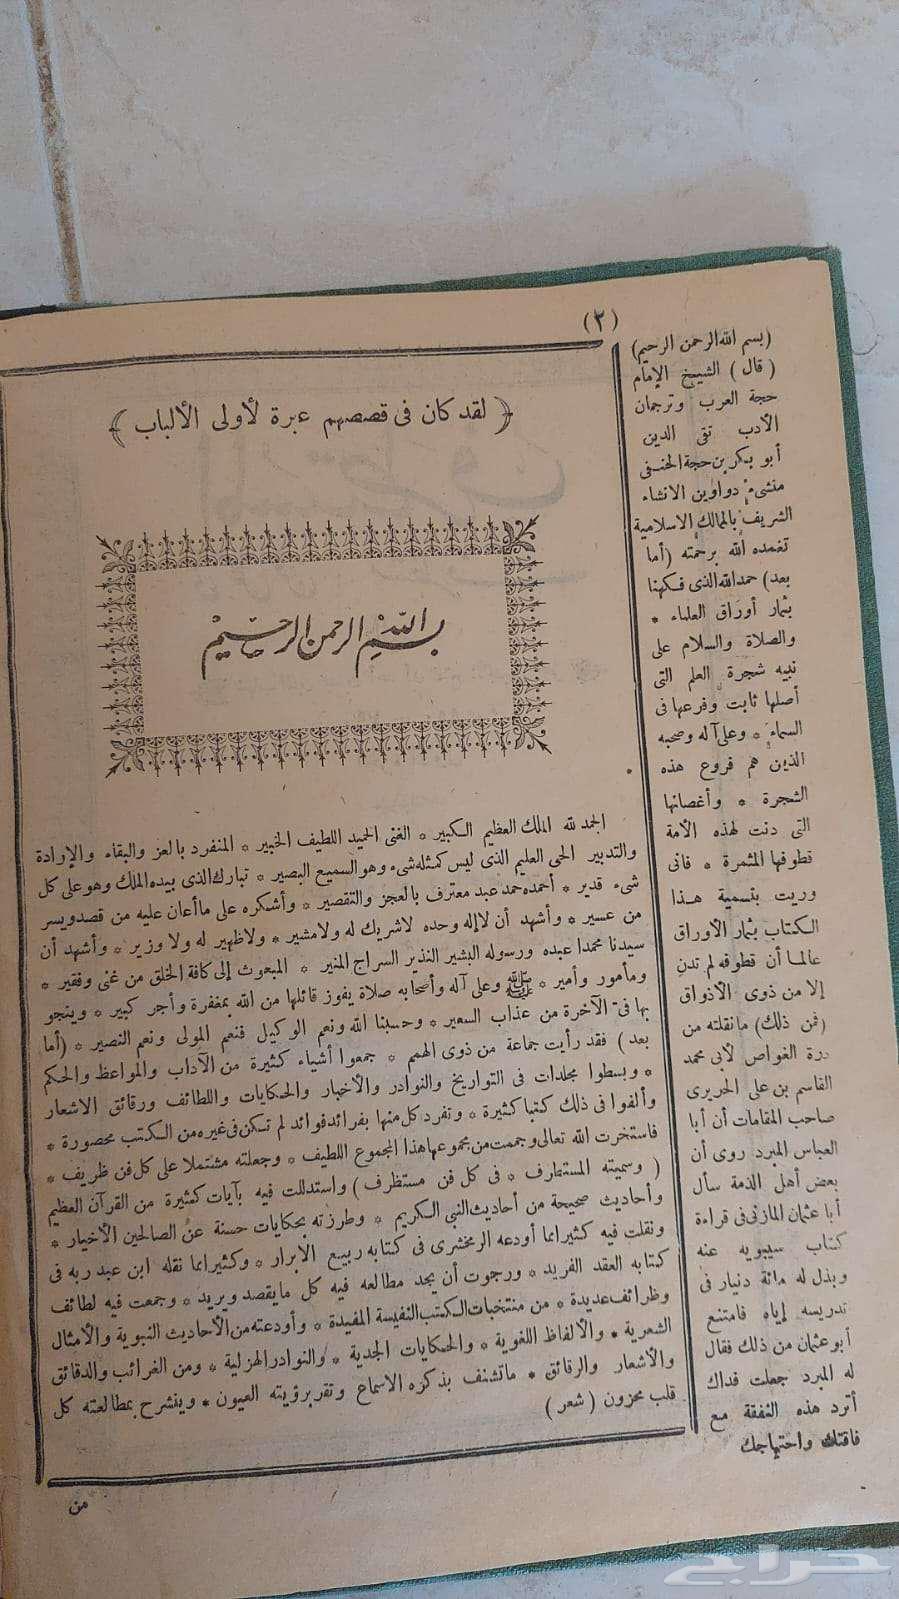 (٢)
﴿ لقد كان فى قصصهم عبرة لأولى الألباب ﴾
بسم الله الرحمن الرحيم
الحمد لله الملك العظيم الكبير * الغنى الحميد اللطيف الخبير * المنفرد بالعز والبقاء والإرادة
والتدبير الحى العليم الذى ليس كمثله شىء وهو السميع البصير * تبارك الذى بيده الملك وهو على كل
شىء قدير * أحمده حمد عبد معترف بالعجز والتقصير * وأشكره على ما أعان عليه من قصد ويسر
من عسير * وأشهد أن لا إله وحده لا شريك له ولا مشير * ولا ظهير له ولا وزير * وأشهد أن
سيدنا محمدا عبده ورسوله البشير النذير السراج المنير * المبعوث إلى كافة الخلق من غنى وفقير *
ومأمور وأمير * ﷺ وعلى آله وأصحابه صلاة يفوز قائلها من الله بمغفرة وأجر كبير * وينجو
بها فى الآخرة من عذاب السعير * وحسبنا الله ونعم الوكيل فنعم المولى ونعم النصير * (أما
بعد) فقد رأيت جماعة من ذوى الهمم * جمعوا أشياء كثيرة من الآداب والمواعظ والحكم
* وبسطوا مجلدات فى التواريخ والنوادر والأخبار والحكايات واللطائف ورقائق الاشعار
وألفوا فى ذلك كتبا كثيرة * وتفرد كل منها بفرائد فوائد لم تكن فى غيره من الكتب محصورة *
فاستخرت الله تعالى وجمعت من مجموعها هذا المجموع اللطيف * وجعلته مشتملا على كل فن ظريف *
( وسميته المستطرف * فى كل فن مستظرف ) واستدللت فيه بآيات كثيرة من القرآن العظيم
وأحاديث صحيحة من أحاديث النبى الكريم * وطرزته بحكايات حسنة عن الصالحين الأخيار *
ونقلت فيه كثيرا مما أودعه الزمخشرى فى كتابه ربيع الأبرار * وكثيرا مما نقله ابن عبد ربه فى
كتابه العقد الفريد * ورجوت أن يجد مطالعه فيه كل ما يقصد ويريد * وجمعت فيه لطائف
وظرائف عديدة * من منتخبات الكتب النفيسة المفيدة * وأودعته من الأحاديث النبوية والأمثال
الشعرية * والألفاظ اللغوية * والحكايات الجدية * والنوادر الهزلية * ومن الغرائب والدقائق
والأشعار والرقائق * ما تشنف بذكره الاسماع وتقر برؤيته العيون * وينشرح بمطالعته كل
قلب محزون ( شعر )
من
(بسم الله الرحمن الرحيم)
( قال ) الشيخ الإمام
حجة العرب وترجمان
الأدب تقى الدين
أبو بكر بن حجة الحنفى
منشىء دواوين الانشاء
الشريف بالممالك الاسلامية
تغمده الله برحمته (أما
بعد) حمدا لله الذى فكهنا
بثمار أوراق العلماء *
والصلاة والسلام على
نبيه شجرة العلم التى
أصلها ثابت وفرعها فى
السماء * وعلى آله وصحبه
الذين هم فروع هذه
الشجرة * وأغصانها
التى دنت لهذه الأمة
قطوفها المثمرة * فانى
وريت بتسمية هذا
الكتاب بثمار الأوراق
عالما أن قطوفه لم تدن
إلا من ذوى الأذواق
(فمن ذلك) ما نقلته من
درة الغواص لأبى محمد
القاسم بن على الحريرى
صاحب المقامات أن أبا
العباس المبرد روى أن
بعض أهل الذمة سأل
أبا عثمان المازنى فى قراءة
كتاب سيبويه عنه
وبذل له مائة دنيار فى
تدريسه إياه فامتنع
أبو عثمان من ذلك فقال
له المبرد جعلت فداك
أترد هذه النفقة مع
فاقتك واحتياجك
حراج